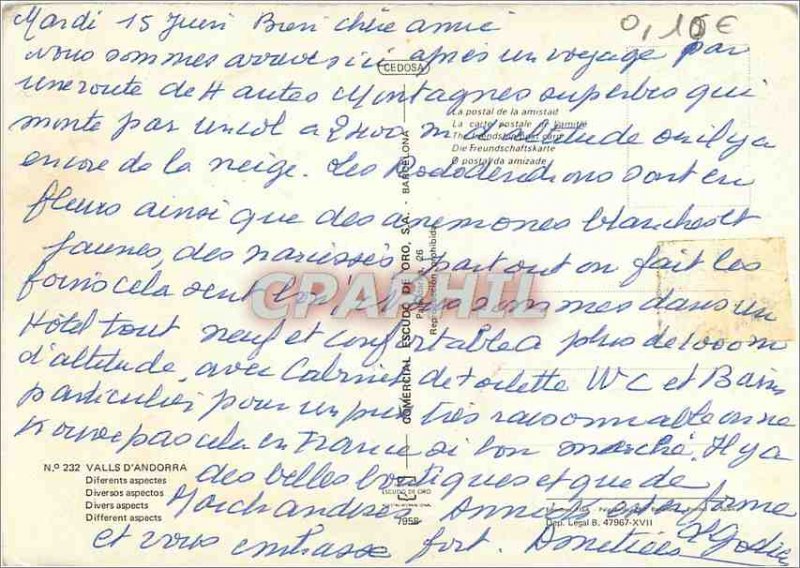 Mardi 15 Juin Bien chère amie
0,10€
nous sommes arrivés ici après un voyage par
CEDOSA
une route de Hautes Montagnes superbes qui
La postal de la amistad
La carte postale de l'amitié
monte par un col a 2400 m d'altitude ou il y a
The friendship post card
Die Freundschaftskarte
O postal da amizade
encore de la neige. Les Rododendrons sont en
fleurs ainsi que des anemones blanches et
jaunes, des narcisses partout on fait les
foins cela sent bon nous sommes dans un
Hôtel tout neuf et confortable a plus de 1000m
d'altitude avec Cabinet de toilette WC et Bains
particulier pour un prix très raisonnable on ne
trouve pas cela en France si bon marché. Il y a
des belles boutiques et que de
Marchandises
et vous embrasse fort.
COMERCIAL ESCUDO DE ORO, S.A. - BARCELONA
Reproducción prohibida
CPAPHIL
N.º 232 VALLS D'ANDORRA
Diferents aspectes
Diversos aspectos
Divers aspects
Different aspects
ESCUDO DE ORO
7958
Dep. Legal B. 47967-XVII